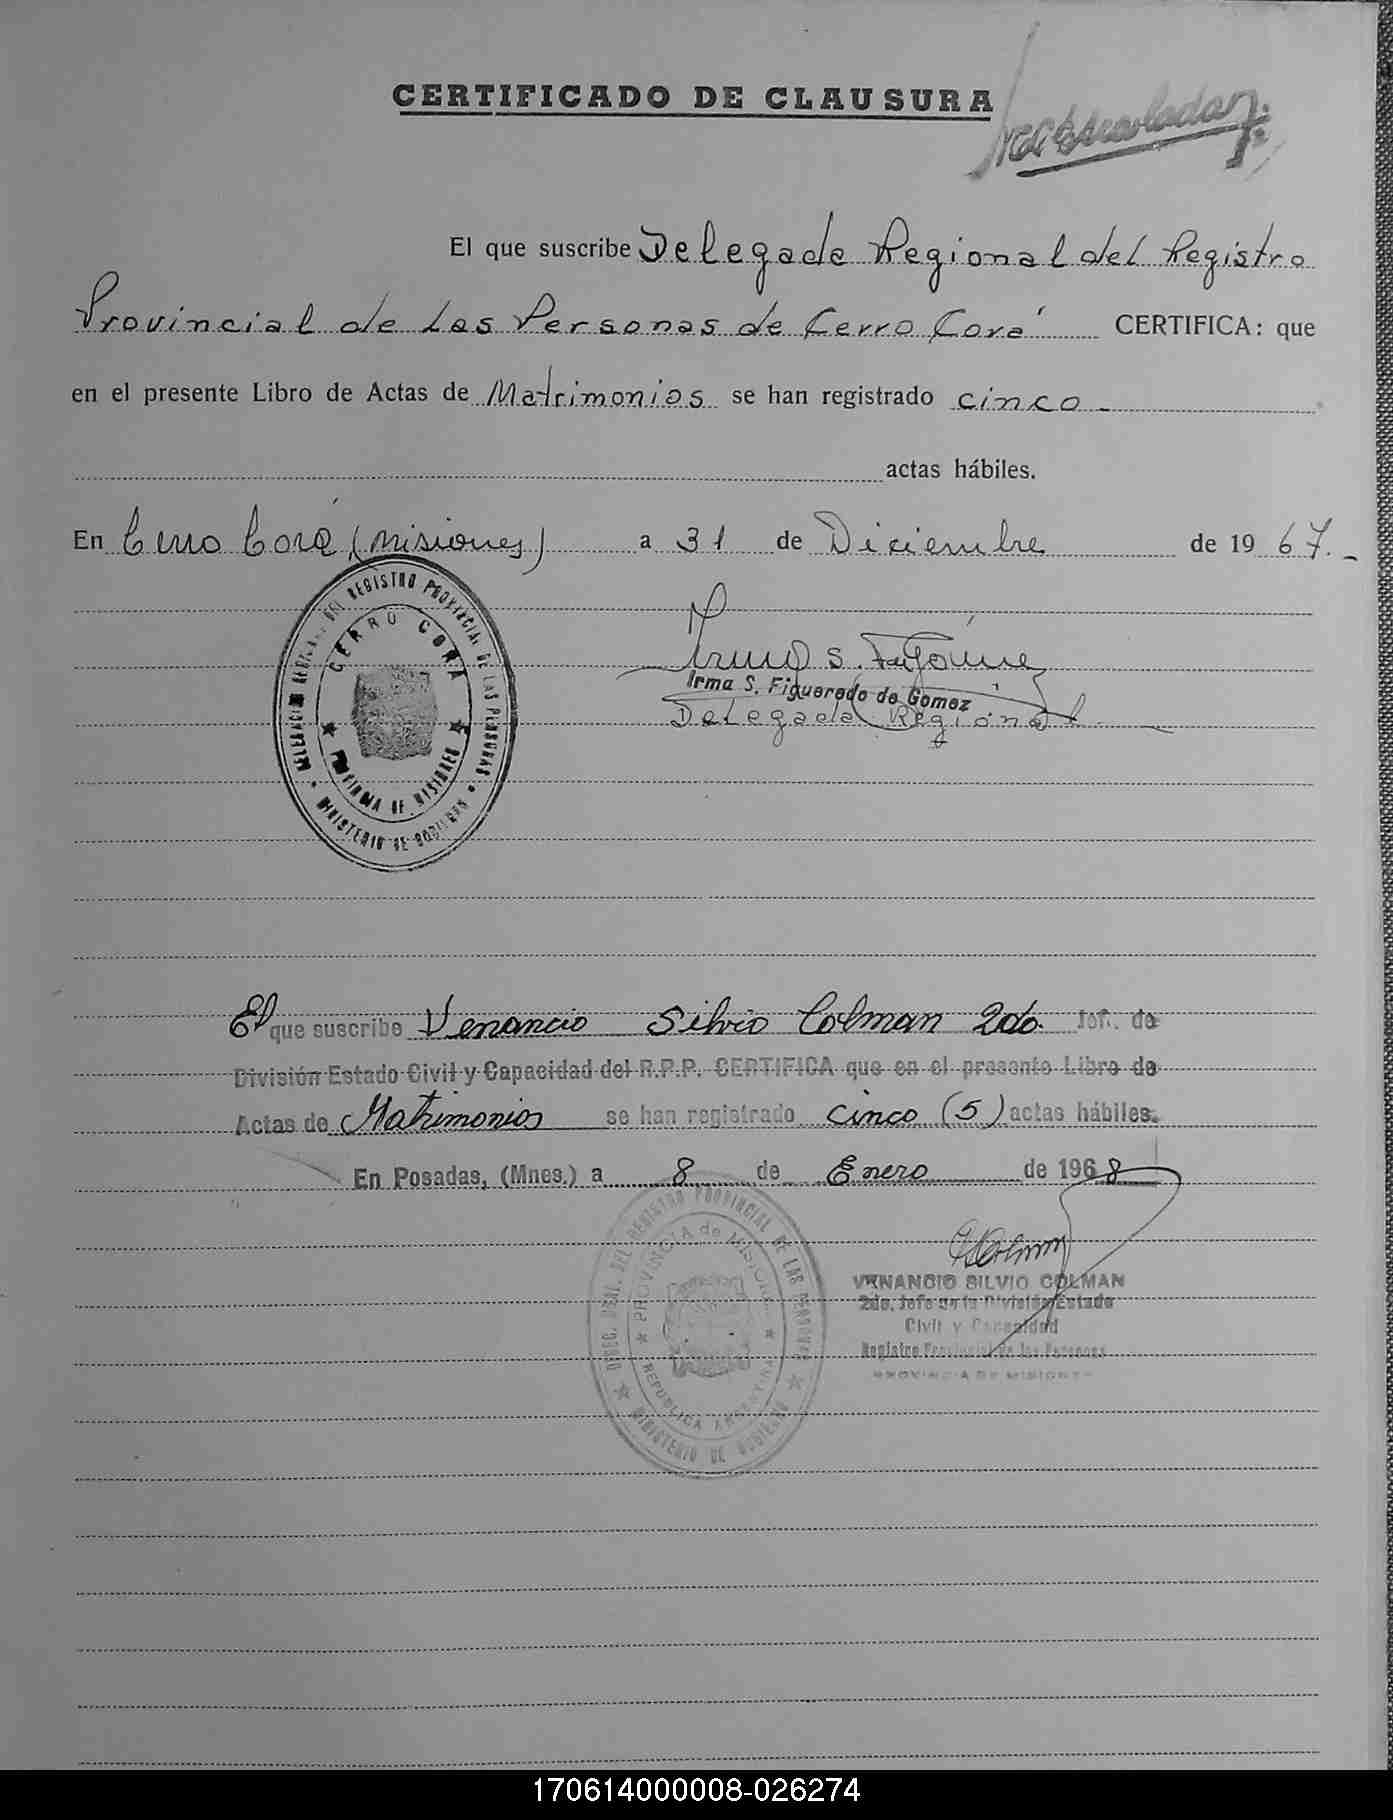 CERTIFICADO DE CLAUSURA
El que suscribe Delegada Regional del Registro
Provincial de las Personas de Cerro Corá CERTIFICA: que
en el presente Libro de Actas de Matrimonios se han registrado cinco -
actas hábiles.
En Cerro Corá (Misiones) a 31 de Diciembre de 1967.-
DELEGACION REGIONAL DEL REGISTRO PROVINCIAL DE LAS PERSONAS
CERRO CORA
PROVINCIA DE MISIONES
MINISTERIO DE GOBIERNO
Irma S. F. de Gómez
Irma S. Figueredo de Gomez
Delegada Regional
El que suscribe Venancio Silvio Colman 2do. Jef. de
División Estado Civil y Capacidad del R.P.P. CERTIFICA que en el presente Libro de
Actas de Matrimonios se han registrado cinco (5) actas hábiles.
En Posadas, (Mnes.) a 8 de Enero de 1968
DIREC. GRAL. DEL REGISTRO PROVINCIAL DE LAS PERSONAS
PROVINCIA de MISIONES
REPUBLICA ARGENTINA
MINISTERIO DE GOBIERNO
VSColman
VENANCIO SILVIO COLMAN
2do. Jefe de la División Estado
Civil y Capacidad
Registro Provincial de las Personas
PROVINCIA DE MISIONES
170614000008-026274